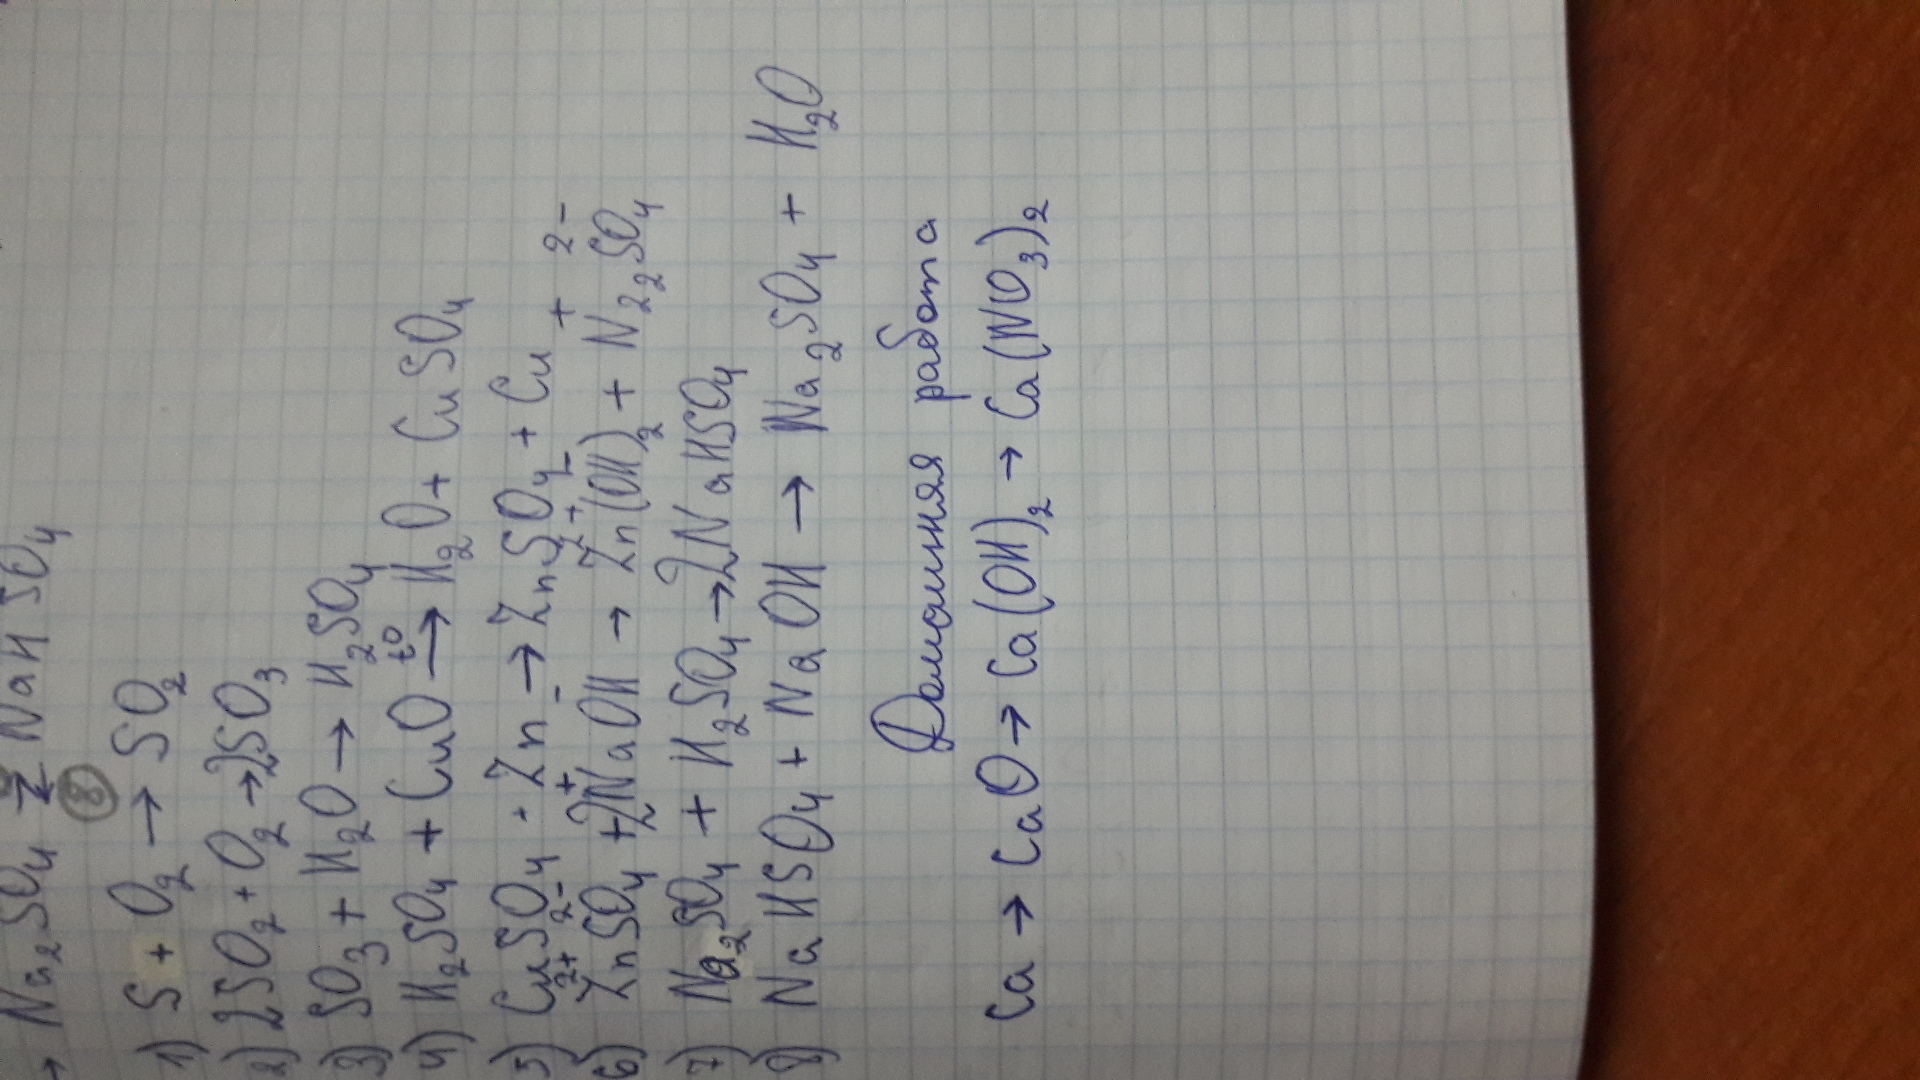 → Na₂SO₄ ⇄ NaHSO₄
⑧
1) S + O₂ → SO₂
2) 2SO₂ + O₂ → 2SO₃
3) SO₃ + H₂O → H₂SO₄
4) H₂SO₄ + CuO t° → H₂O + CuSO₄
5) CuSO₄ + Zn → ZnSO₄ + Cu
2+ 2- + - 2+ - + 2-
6) ZnSO₄ + 2NaOH → Zn(OH)₂ + N₂₂SO₄
7) Na₂SO₄ + H₂SO₄ → 2NaHSO₄
8) NaHSO₄ + NaOH → Na₂SO₄ + H₂O
Домашняя работа
Ca → CaO → Ca(OH)₂ → Ca(NO₃)₂